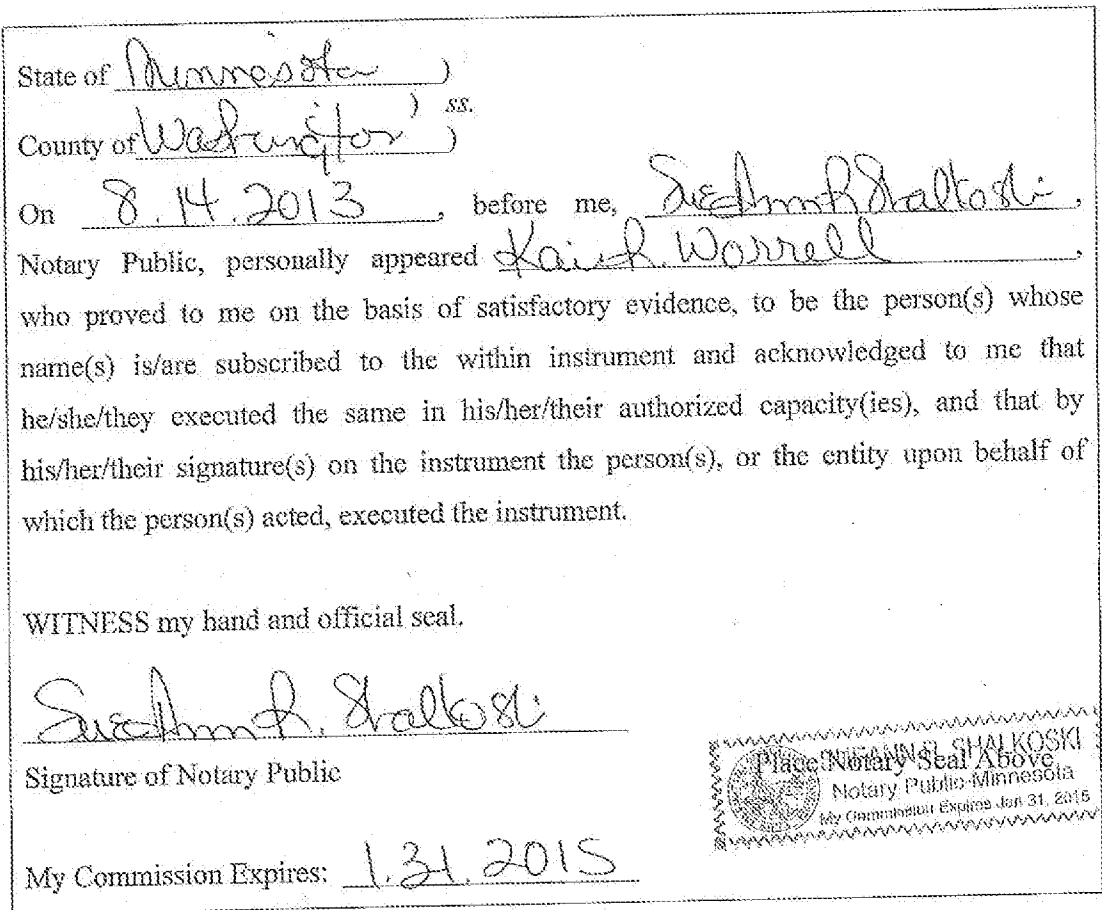 State of Minnesota )
) ss.
County of Washington )
On 8.14.2013, before me, SueAnn R Shalkoski,
Notary Public, personally appeared Kai R. Worrell,
who proved to me on the basis of satisfactory evidence, to be the person(s) whose
name(s) is/are subscribed to the within instrument and acknowledged to me that
he/she/they executed the same in his/her/their authorized capacity(ies), and that by
his/her/their signature(s) on the instrument the person(s), or the entity upon behalf of
which the person(s) acted, executed the instrument.
WITNESS my hand and official seal.
SueAnn R. Shalkoski
Signature of Notary Public
SUEANN R. SHALKOSKI
Place Notary Seal Above
Notary Public-Minnesota
My Commission Expires Jan 31, 2015
My Commission Expires: 1.31.2015